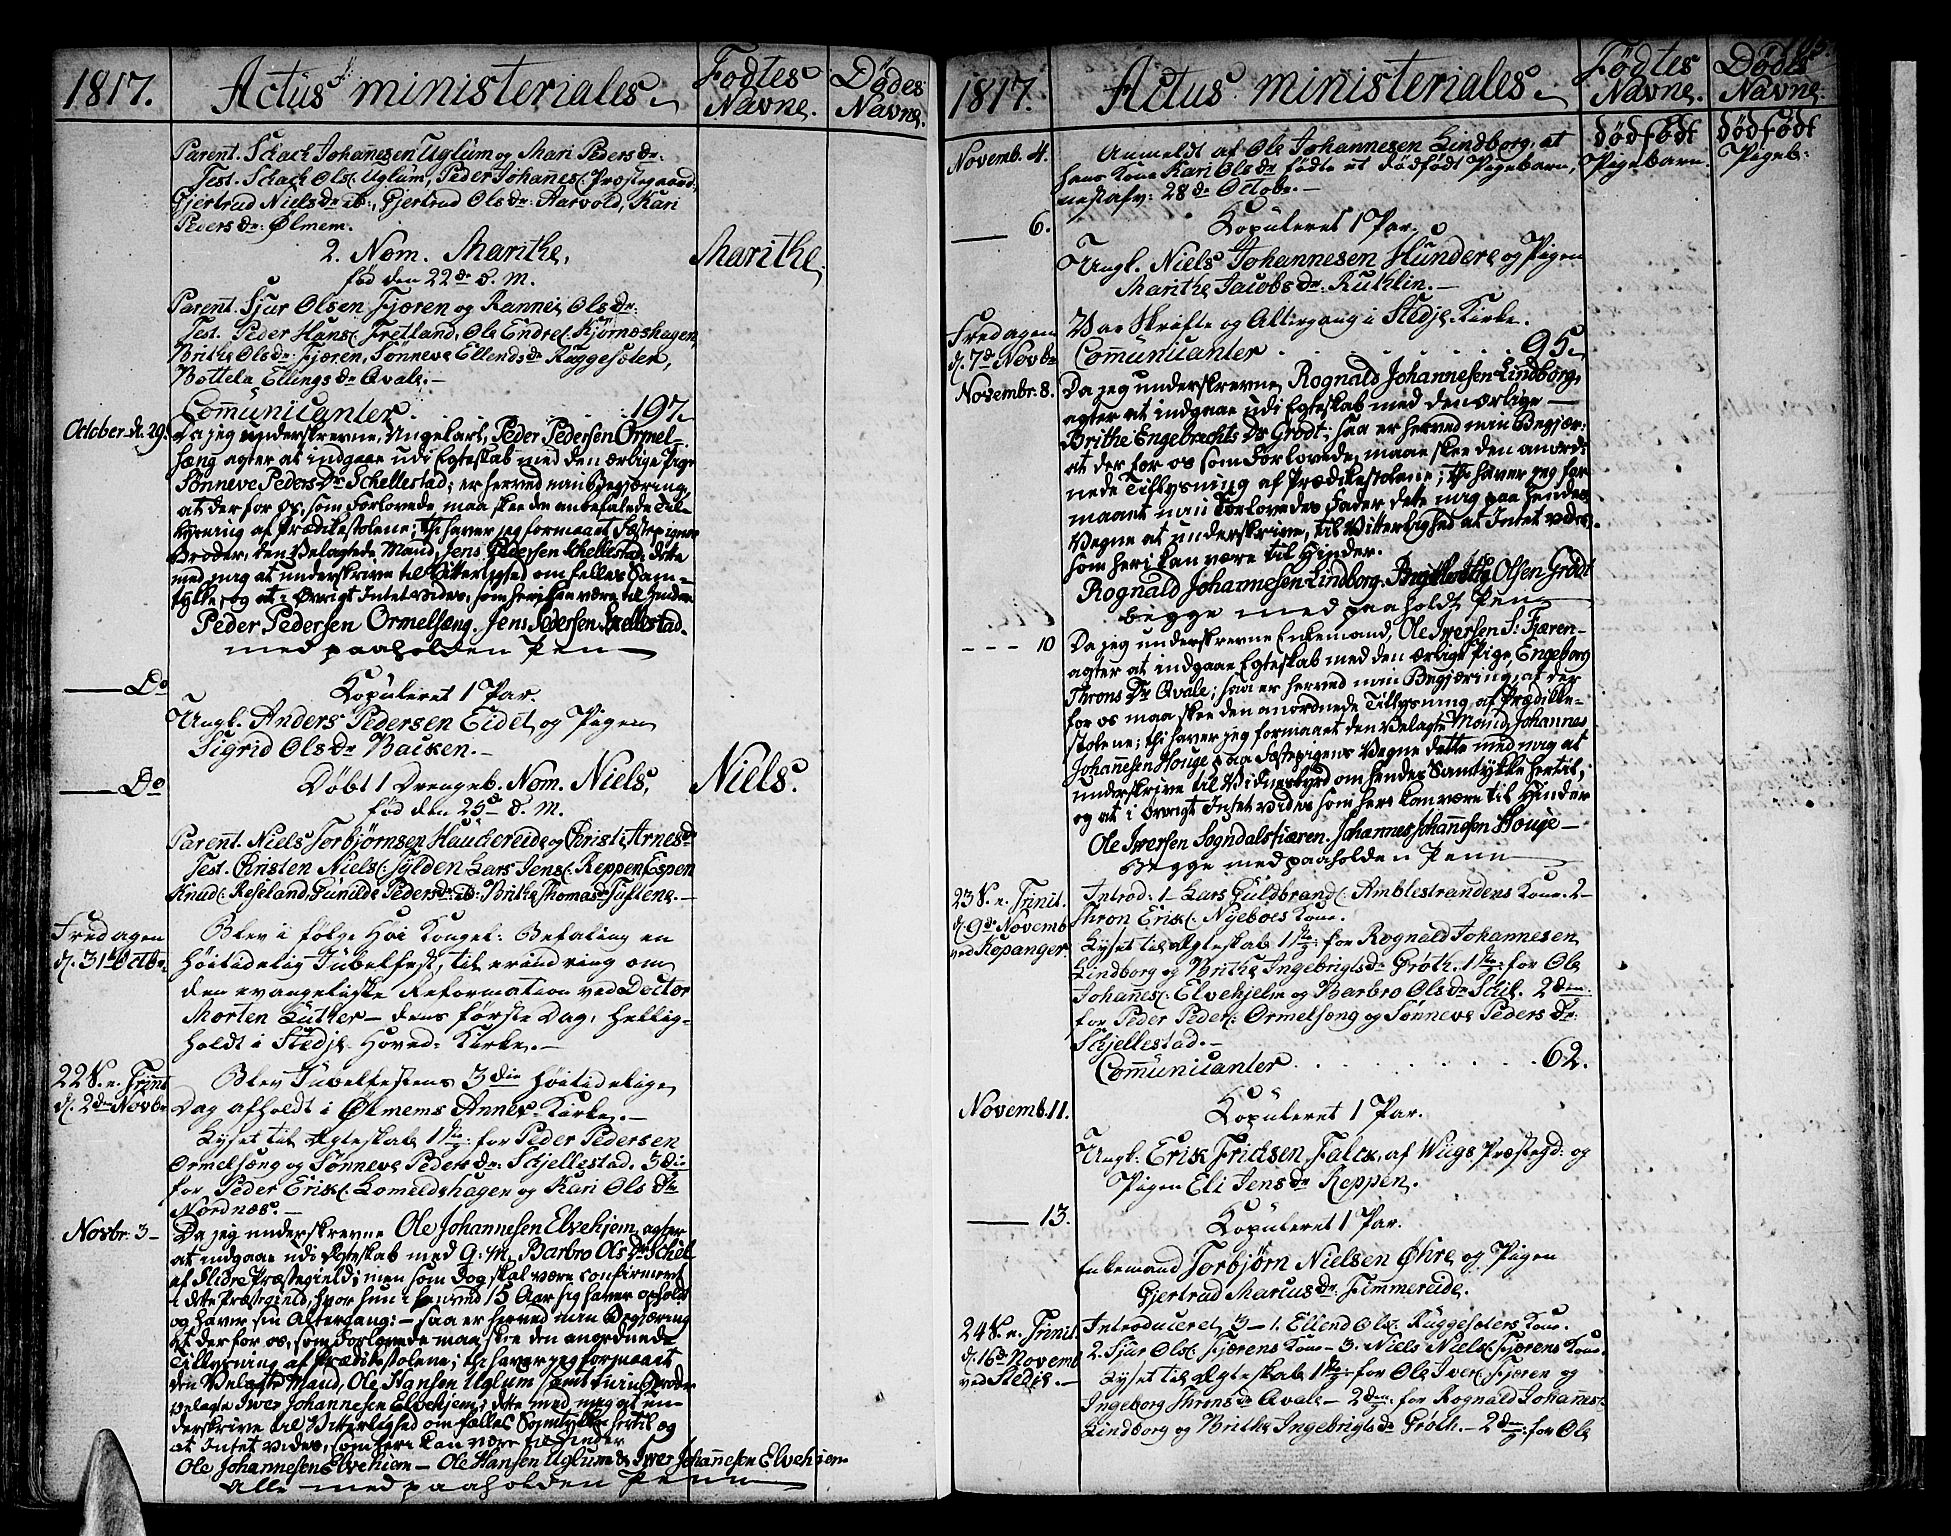 1817. Actus ministeriales. Fødtes Navne. Dødes Navne.
Parent. Schach Johannesen Uglum og Mari Peders Dr:
Test. Schach Ols: Uglum, Peder Johanes: Prostegaard,
Gjertrud Niels Dr ib:, Gjertrud Ols Dr: Aarvold, Kari
Peders Dr: Ølmem.
2. Nom. Marithe, Marithe.
fød den 22de d. M.
Parent. Sjur Olsen Fjæren og Rannei Ols Dr:
Test. Peder Hans: Fretland, Ole Endres: Kjørnæshagen,
Brithe Ols Dr Fjæren, Sønneve Ellends Dr Ruggesæter,
Bottela Ellings Dr Qvale.
Communicanter. 197.
October d. 29. Da jeg underskrevne, Ungekarl, Peder Pedersen Ormel-
sæng agter at indgaae udi Egteskab med den ærlige Pige
Sønneve Peders Dr Schellestad; er herved min Begjæring,
at der for os, som Forlovede, maa skee den anbefalede Til-
lysning af Prædikestolene; thi haver jeg formaaet Fæstepigens
Broder, den Velagte Mand, Jens Pedersen Schellestad, dette
med mig at underskrive til Vitterlighed om felles Sam-
tykke, og at i Øvrigt Intet vides, som heri kan være til Hinder
Peder Pedersen Ormelsæng. Jens Pedersen Skellestad.
med paaholden Pen
Do Kopuleret 1 Par.
Ungk. Anders Pedersen Eidet og Pigen
Sigrid Ols Dr Backen.
Do Døbt 1 Drengeb. Nom. Niels, Niels.
fød den 25de d. M.
Parent. Niels Torbjørnsen Haudereide og Christi Arnes Dr
Test. Christen Niels: Tylden Lars Jens: Reppen Espen
Knud: Reseland, Gunilde Peders Dr ib: Brithe Thomas Dr Tuftene.
Fredagen Blev i følge Høi Kongel: Befaling en
d. 31te Octbr. høitidelig Jubelfest, til erindring om
den evangeliske Reformation ved Doctor
Morten Luther - dens første Dag, hellig-
holdt i Stedje Hoved-Kirke.
22 S. e. Trinit Blev Jubelfestens 3die høitidelige
d. 2den Novbr Dag afholdt i Ølmems Annex-Kirke.
Lyset til Ægteskab 1ste: for Peder Pedersen
Ormelsæng og Sønneve Peders Dr: Schjellestad. 3die
for Peder Erik: Lomeldshagen og Kari Ols Dr
Nordnæs.
Novbr. 3 Da jeg underskrevne Ole Johannesen Elvehjem agter
at indgaae udi Ægteskab med G. M. Barbro Ols Dr Schel
af Slidre Præstegield; men som dog skal være confirmeret
i dette Præstegield, hvor hun i henved 15 Aar sig haver opholdt
og haver sin Altergang: - saa er herved min Begjæring
at der for os, som Forlovede maa skee den anordnede
Tillysning af Prædikestolene; thi haver jeg formaaet
den Velagte Mand, Ole Hansen Uglum samt min Broder
velagte Iwer Johannesen Elvehjem; dette med mig at un-
derskrive til Vitterlighed om felles Samtykke hertil og
at Intet vides, som heri kan være til Hinder
Ole Johannesen Elvehiem - Ole Hansen Uglum & Iwer Johannesen Elvehiem
Alle med paaholden Penn
1817. Actus ministeriales. Fødtes Navne. Dødes Navne.
Novemb. 4. Anmeldt af Ole Johannesen Lindborg, at dødfødt dødfødt
hans Kone Kari Ols Dr fødte et dødfødt Pigebarn, Pigebarn. Pigeb:
28de Octobr.
6. Kopuleret 1 Par.
Ungk. Niels Johannesen Hundere og Pigen
Marithe Jacobs Dr: Kuhlin.
Fredagen Var Skrifte og Altergang i Stedje Kirke.
d. 7de Novbr Communicanter 95.
Novembr. 8. Da jeg underskrevne, Rognald Johannesen Lindborg,
agter at indgaae udi Egteskab med den ærlige
Brithe Engebrechts Dr Grodt; saa er herved min Begjær:
at der for os som Forlovede, maae skee den anord-
nede Tillysning af Prædikestolene; thi haver jeg for
maaet min Forlovedes Fader, dette mig paa hendes
Vegne at underskrive, til Vitterlighed at Intet vides,
som heri kan være til Hinder.
Rognald Johannesen Lindborg. Olsen Grodt
begge med paaholdt Pen
10 Da jeg underskrevne Enkemand, Ole Iwersen S: Fjæren
agter at indgaae Egteskab med den ærlige Pige, Engeborg
Throns Dr Qvale; saa er herved min Begjæring, at der
for os maa skee den anordnede Tillysning af Prædike-
stolene; thi haver jeg formaaet den Velagte Mand, Johannes
Johannesen Houge, paa Fæstepigens Vegne dette med mig at
underskrive til Vidnesbyrd om hendes Samtykke hertil,
og at i Øvrigt Intet vides som heri kan være til Hinder
Ole Iwersen Sogndalsfiæren. Johannes Johannesen Houge
Begge med paaholden Penn
23 S. e. Trinit. Introd: 1 - Lars Guldbrand: Amblestrandens Kone. 2 -
d. 9de Novemb Thron Erik: Nyeboes Kone.
ved Kopanger. Lyset til Ægteskab 1ste: for Rognald Johannesen
Lindborg og Brithe Ingebrigts Dr Grøth. 1ste: for Ole
Johannes: Elvehjelm og Barbro Ols Dr Schil. 2den:
for Peder Peder: Ormelsæng og Sønneve Peders Dr:
Schjellestad.
Communicanter 62.
Novemb. 11. Kopuleret 1 Par.
Ungk: Erik Fridsen Falck, af Wiigs Præstegd: og
Pigen Eli Jens Dr Reppen.
13. Kopuleret 1 Par.
Enkemand Torbjørn Nielsen Øhre og Pigen
Gjertrud Marcus Dr: Timmereide.
24 S. e. Trinit. Introduceret 3 - 1. Ellend Ols: Ruggesæters Kone.
d. 16de Novemb 2. Sjur Ols: Fjærens Kone - 3. Niels Niels: Fjærens Kone.
ved Stedje. Lyset til Ægteskab 1ste: for Ole Iver: Fjæren og
Ingeborg Throns Dr Qvale - 2den: for Rognald Johannes:
Lindborg og Brithe Ingebrigts Dr Grøth. - 2den: for Ole